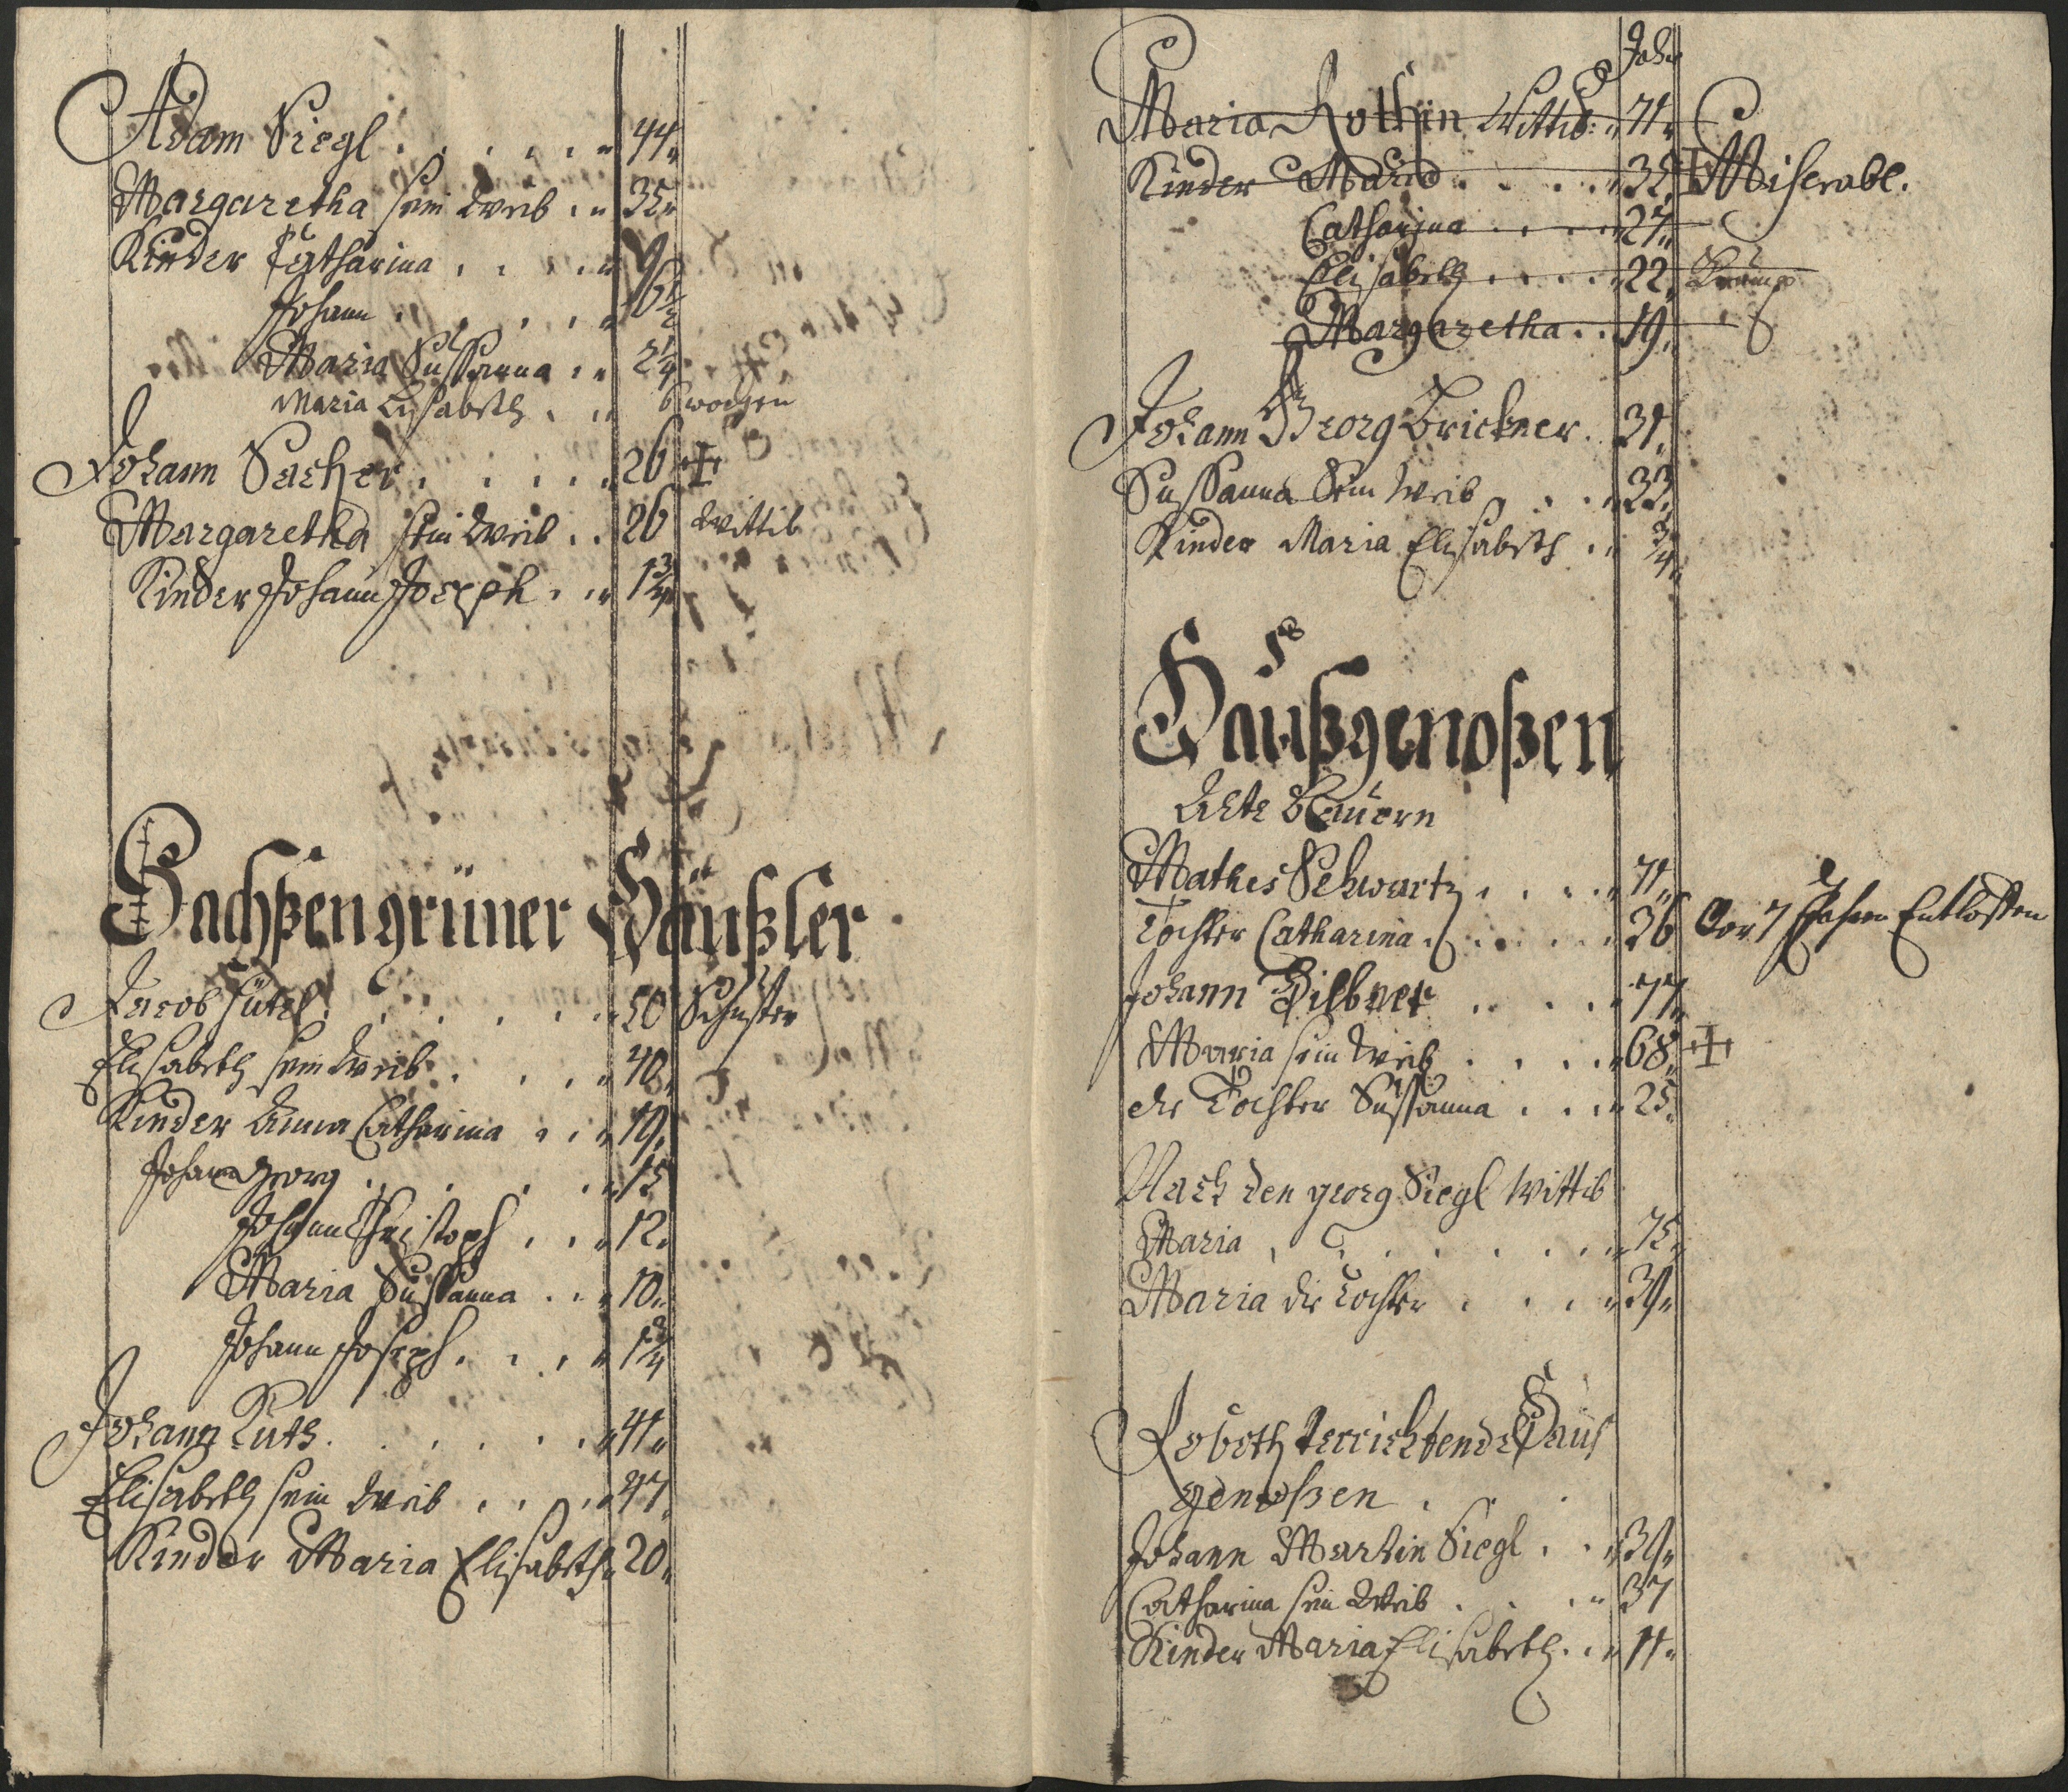 Adam Siegl . . . . . . 44
Margaretha sein Weib . . 35
Kinder Catharina . . . . 9
Johann . . . . . 6 1/2
Maria Sussanna . . 2 1/4
Maria Elisabeth . . 6 wochen
Johann Sacher . . . . . 26 ✝
Margaretha sein Weib . . 26 Wittib
Kinder Johann Joseph . . 1 3/4
Hachßengrüner Häußler
Jacob Hütel . . . . . . 50 Schuster
Elisabeth sein Weib . . . . 40
Kinder Anna Catharina . . 19
Johann Georg . . . . . 15
Johann Christoph . . . 12
Maria Sussanna . . . 10
Johann Joseph . . . . 1 3/4
Johann Ruth . . . . . . 41
Elisabeth sein Weib . . . . 47
Kinder Maria Elisabeth 20
Jahr
Maria Rothin Wittib: 71
Kinder Maria . . . . 32 Miserabl.
Catharina . . . . 27
Elisabeth . . . . 22 Krump
Margaretha . . 19
Johann Georg Brickner . 31
Sussanna Sein Weib . . . 33
Kinder Maria Elisabeth . . 3/4
Haußgenoßen
Alte Bauern
Mathes Schwartz . . . . 71
Tochter Catharina . . . . . 36 Vor 7 Jahren Entloffen
Johann Hilbner . . . . 77
Maria sein Weib . . . . 68 ✝
die Tochter Sussanna . . . 25
Nach den georg Siegl Wittib
Maria . . . . . . . 75
Maria die Tochter . . . . 39
Roboth verrichtende Haus
genoßen .
Johann Martin Siegl . . 39
Catharina sein Weib . . . 37
Kinder Maria Elisabeth . . 11